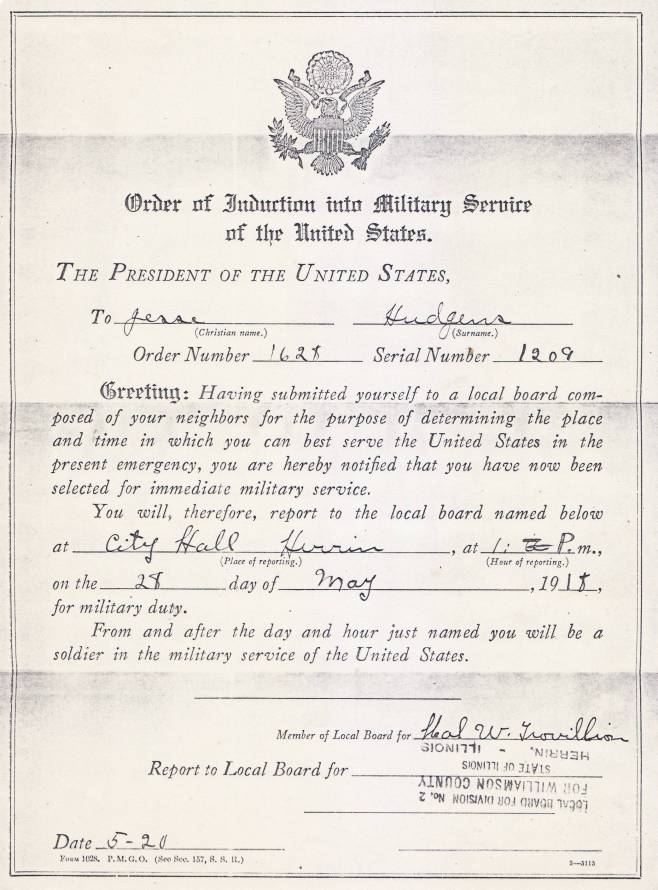 Order of Induction into Military Service
of the United States.
THE PRESIDENT OF THE UNITED STATES,
To Jesse Hudgens
(Christian name.) (Surname.)
Order Number 1628 Serial Number 1209
Greeting: Having submitted yourself to a local board com-
posed of your neighbors for the purpose of determining the place
and time in which you can best serve the United States in the
present emergency, you are hereby notified that you have now been
selected for immediate military service.
You will, therefore, report to the local board named below
at City Hall Herrin, at 1: P.m.,
(Place of reporting.) (Hour of reporting.)
on the 28 day of May, 1918,
for military duty.
From and after the day and hour just named you will be a
soldier in the military service of the United States.
Member of Local Board for Hal W. Trovillion
Report to Local Board for
LOCAL BOARD FOR DIVISION No. 2
FOR WILLIAMSON COUNTY
STATE OF ILLINOIS
HERRIN, - ILLINOIS
Date 5-20
FORM 1028. P. M. G. O. (See Sec. 157, S. S. R.) 3—5115